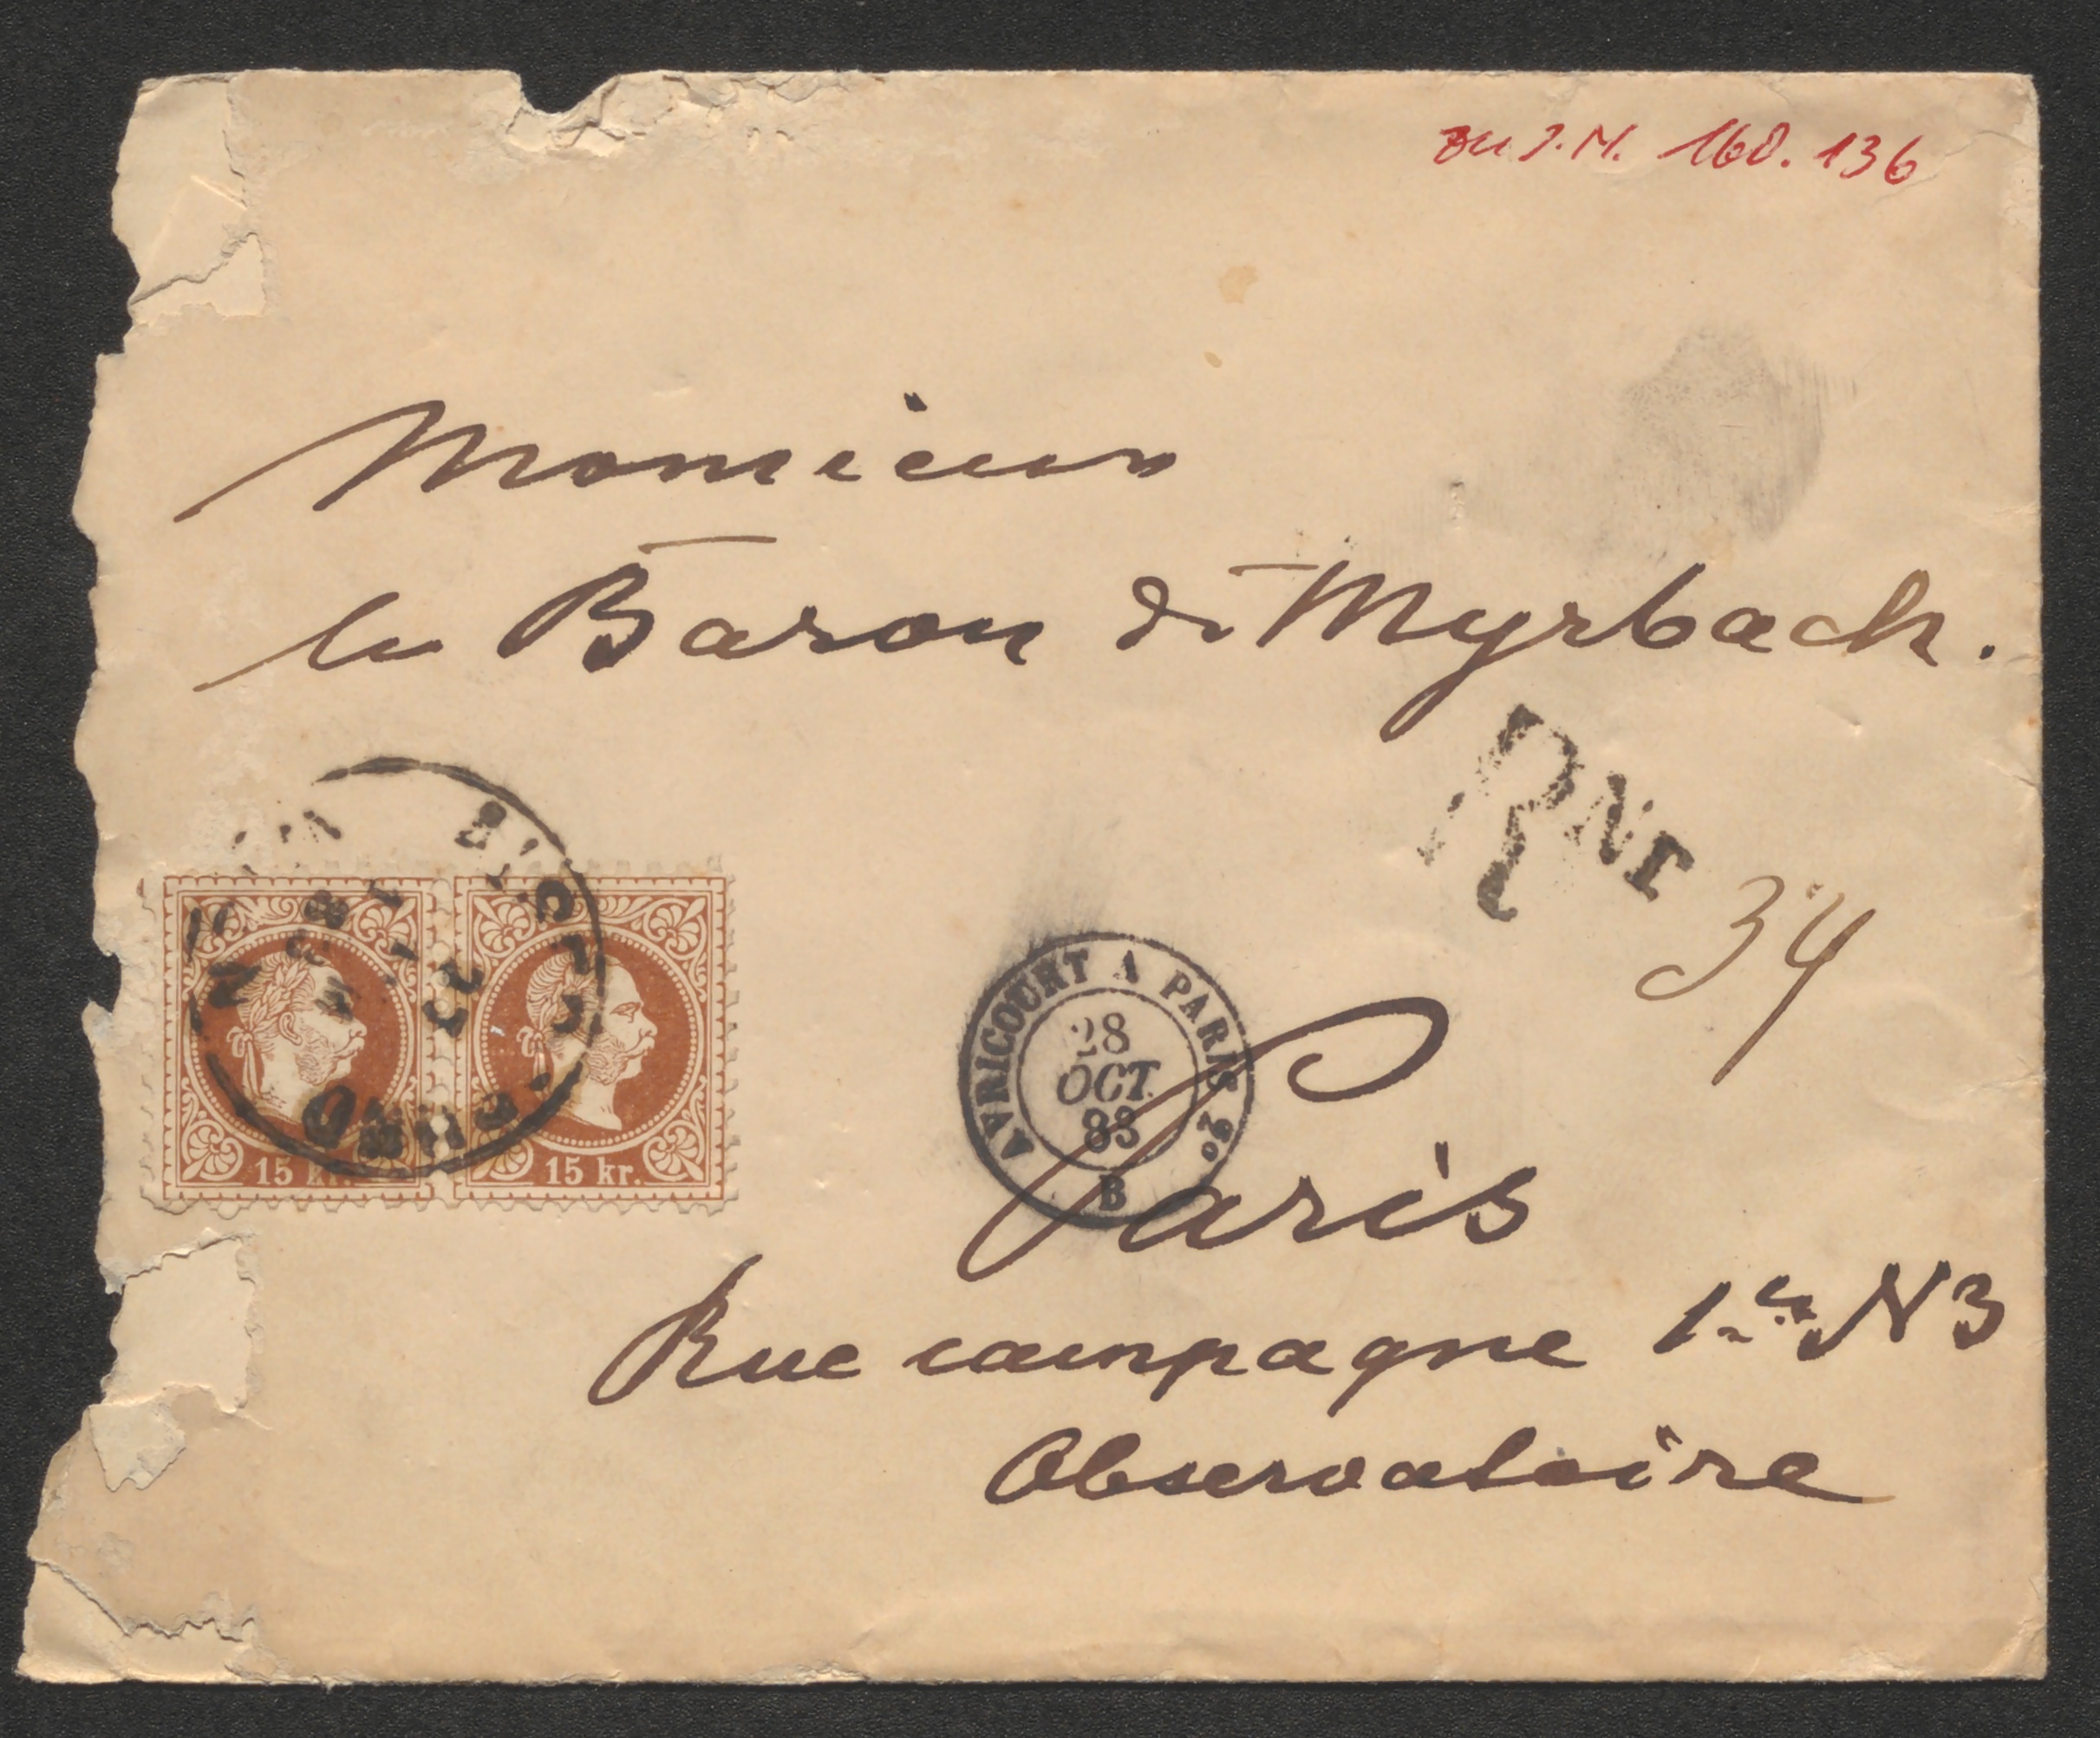 zu I.N. 160.136
Monsieur
le Baron de Myrbach.
R No
34
AVRICOURT A PARIS 2°
28
OCT.
83
B
15 kr.
15 kr.
Paris
Rue campagne 1ère N 3
Observatoire